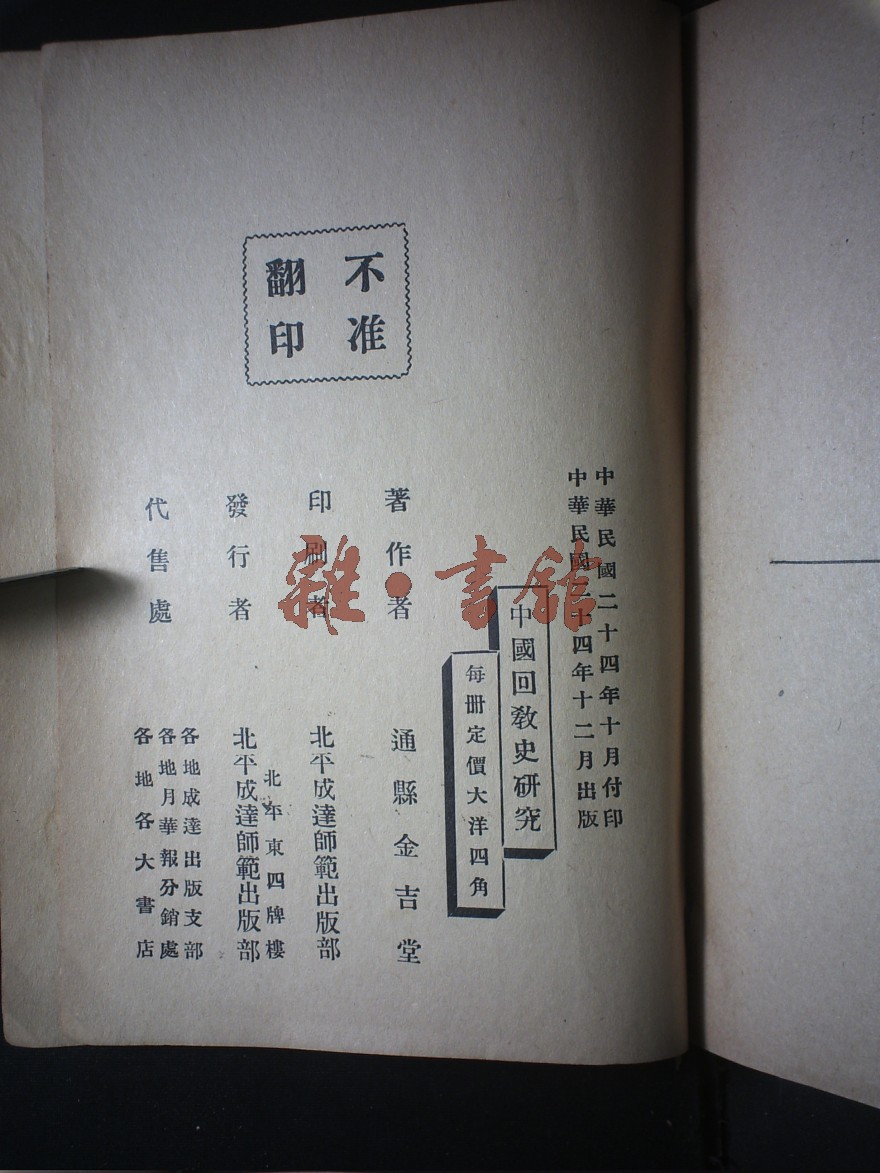 中華民國二十四年十月付印
中華民國二十四年十二月出版
中國回教史研究
每册定價大洋四角
不准
翻印
著作者 通縣金吉堂
印刷者 北平成達師範出版部
北平東四牌樓
發行者 北平成達師範出版部
代售處
各地成達出版支部
各地月華報分銷處
各地各大書店
雜·書館